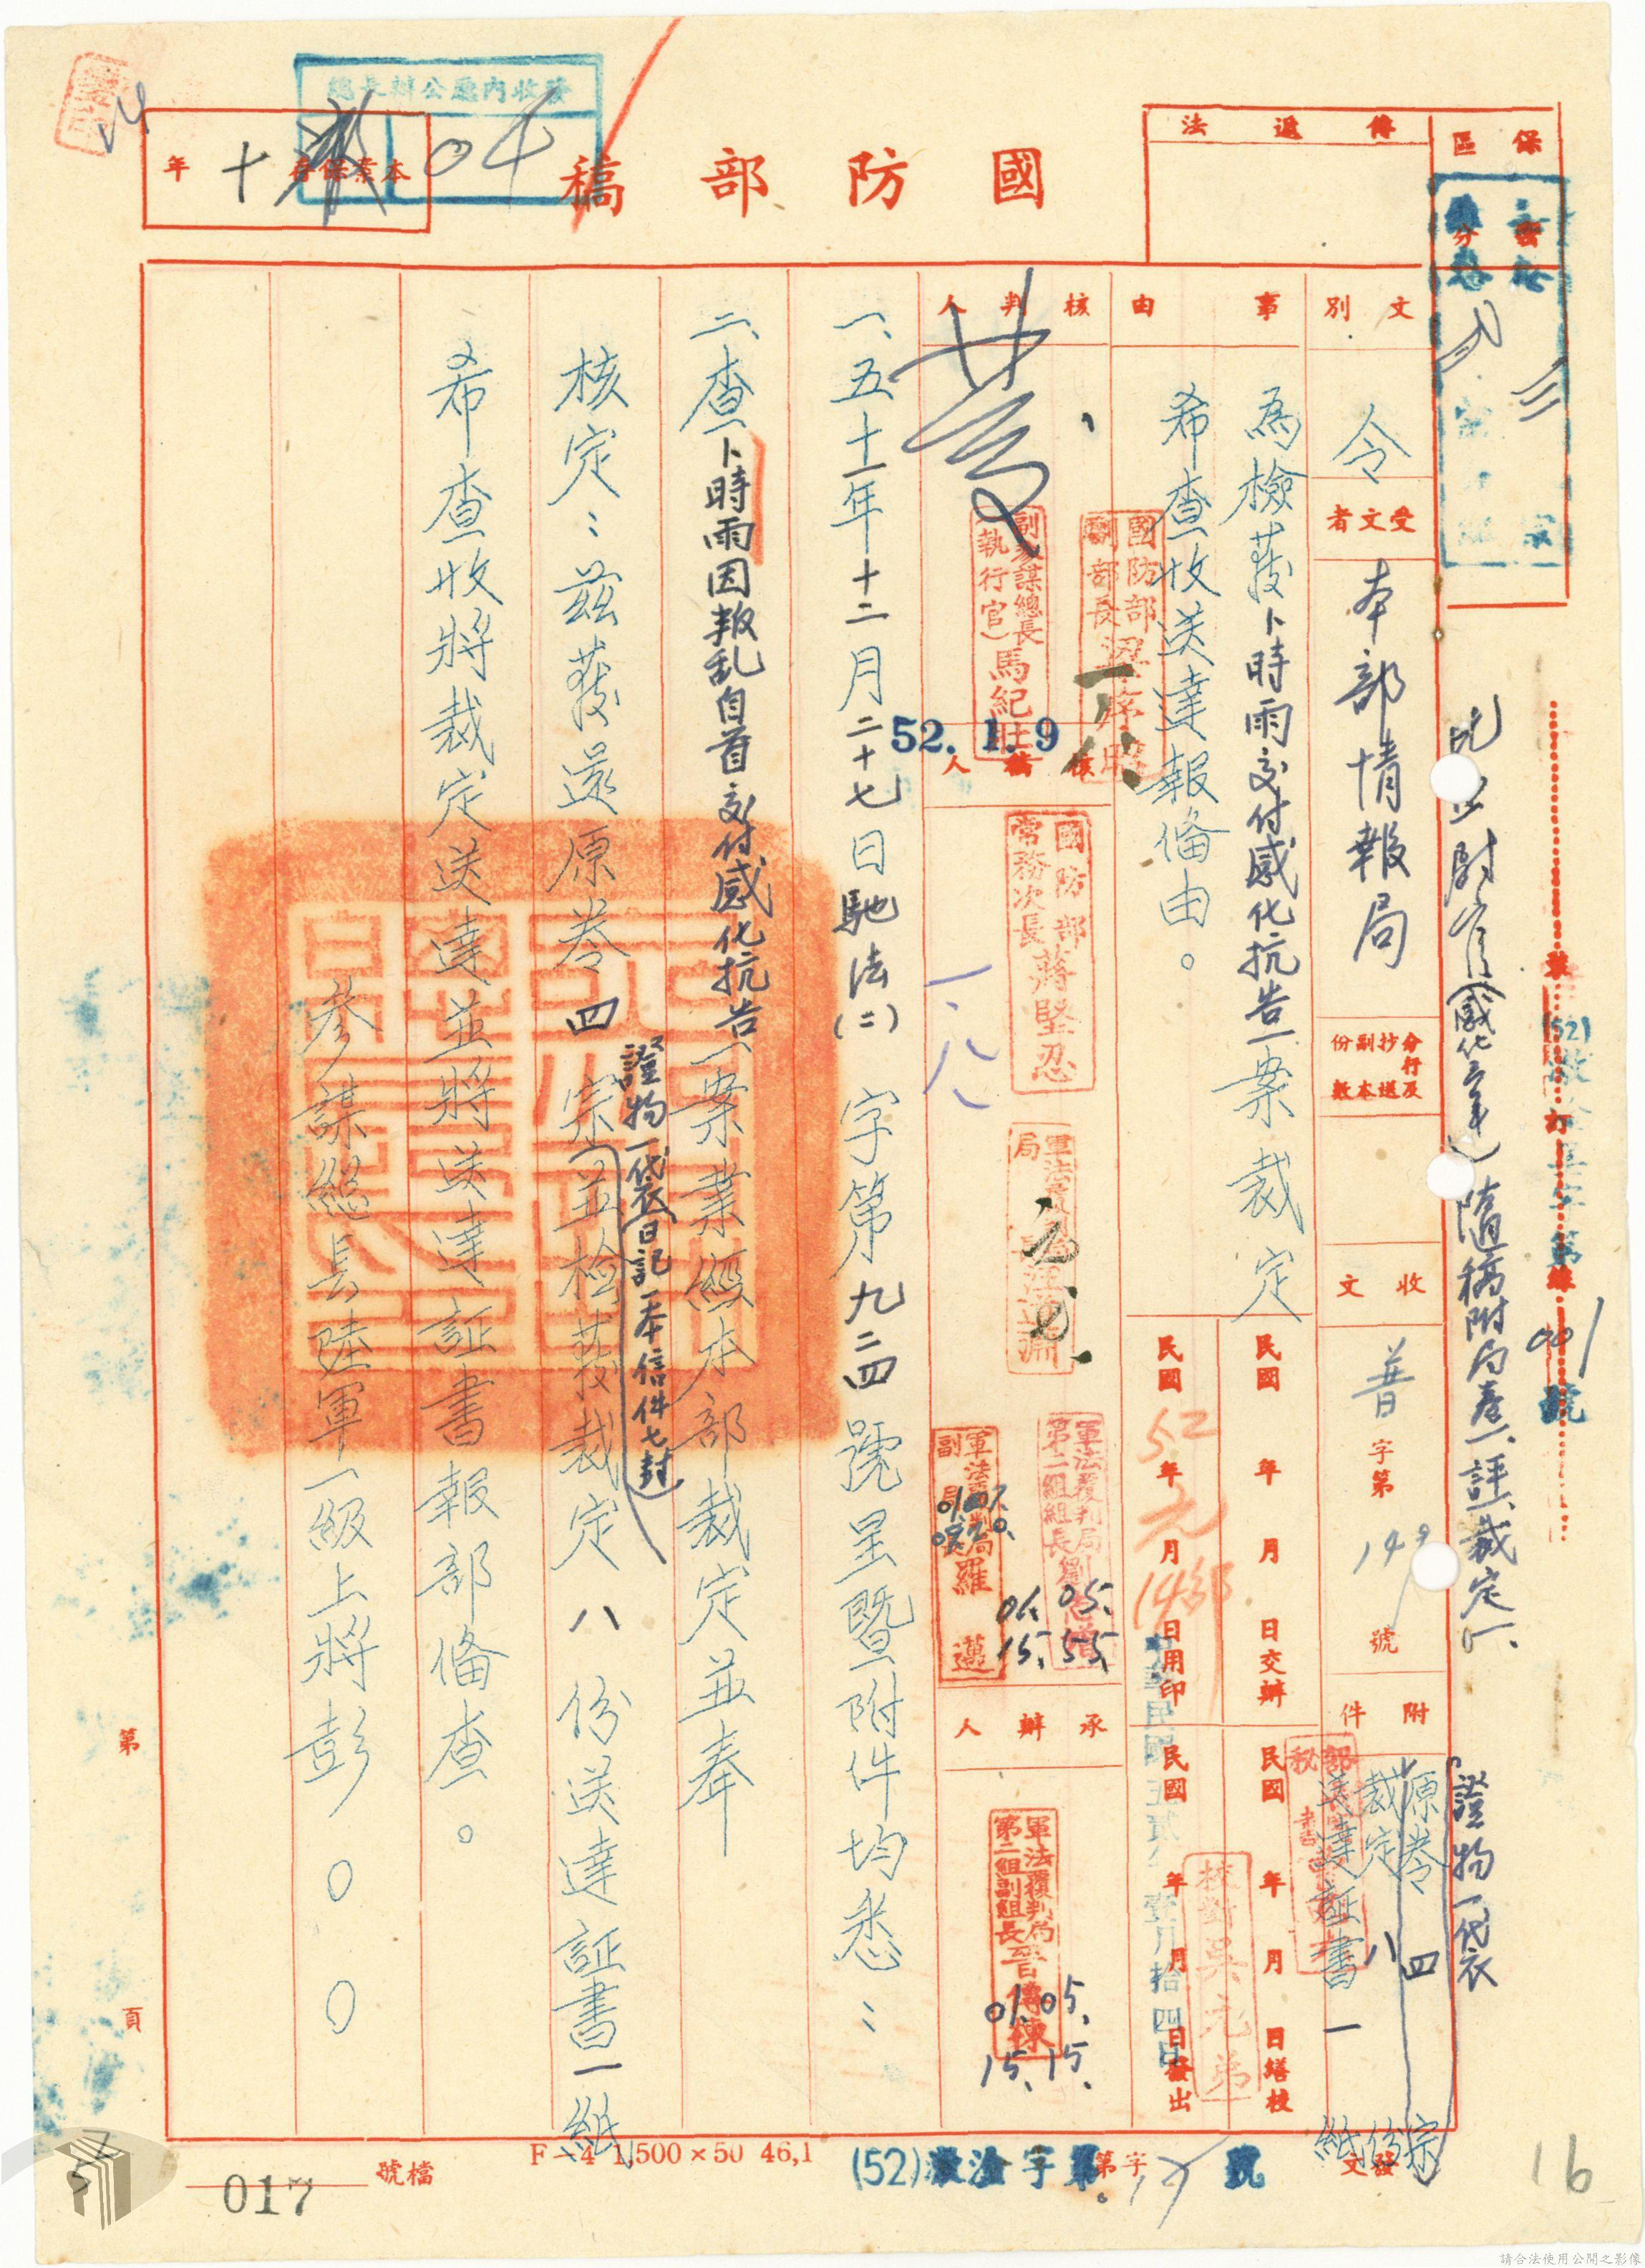 總長辦公廳內收發
國防部稿
本案保存十年
傳遞法
保密區分
文別
令
受文者
本部情報局
分行及抄送副本份數
收文
普字第149號
附件
證物一袋
原卷四宗
裁定八份
送達証書一紙
隨稿附局產一、評、裁定
事由
為檢發卜時雨交付感化抗告一案裁定
希查收送達報備由。
民國 年 月 日交辦
民國 年 月 日繕校
民國52年元月14日用印
民國 年 月 日發出
中華民國五貳年壹月拾四日
校對吳元弟
核判人
核稿人
承辦人
國防部副部長梁序昭
副參謀總長(執行官)馬紀壯
52.1.9
國防部常務次長蔣堅忍
一、八、
軍法覆判局
軍法覆判局第二組組長劉
01.05.
15.55.
軍法覆判局副局長羅邁
軍法覆判局第二組副組長晉傳棟
01.05.
15.15.
一、五十一年十二月二十七日馳法(二)字第九二四號呈暨附件均悉:
二、查卜時雨因叛乱自首交付感化抗告一案業經本部裁定並奉
核定:茲發還原卷四宗(證物一袋日記一本信件七封)並檢發裁定八份送達証書一紙
希查收將裁定送達並將送達証書報部備查。
參謀總長陸軍一級上將彭○○○
第 頁
F—4 1,500×50 46,1
檔號
017
(52)
字第
號
發文
16
請合法使用公開之影像